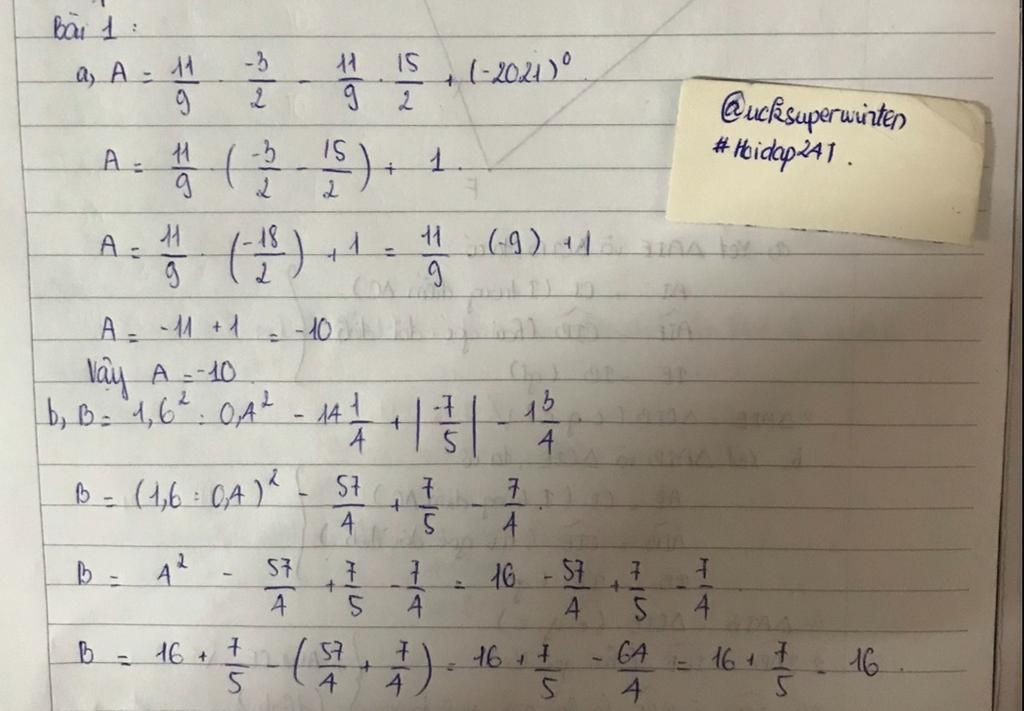 Bài 1 :
a, A = 11/9 . -3/2 - 11/9 . 15/2 + (-2021)⁰
A = 11/9 . (-3/2 - 15/2) + 1 .
A = 11/9 . (-18/2) + 1 = 11/9 . (-9) + 1
A = -11 + 1 = -10
Vậy A = -10 .
b, B = 1,6² : 0,4² - 14 1/4 + |-7/5| - 1 3/4
B = (1,6 : 0,4)² - 57/4 + 7/5 - 7/4 .
B = 4² - 57/4 + 7/5 - 7/4 = 16 - 57/4 + 7/5 - 7/4
B = 16 + 7/5 - (57/4 + 7/4) = 16 + 7/5 - 64/4 = 16 + 7/5 - 16 .
@ucksuperwinten
#Hoidap247 .